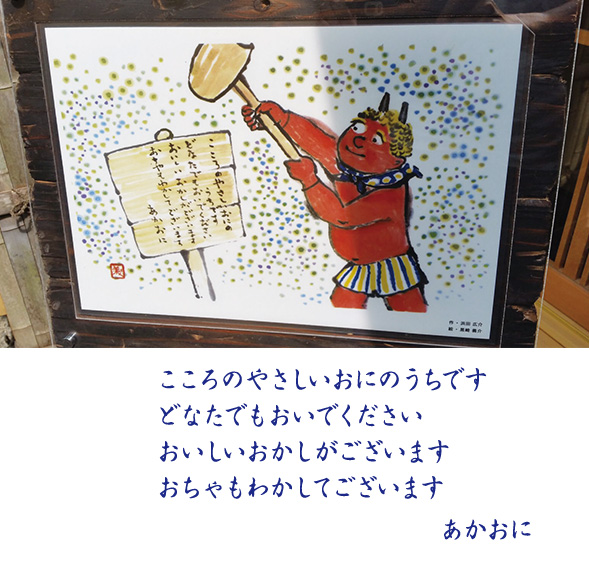 こころのやさしいおにの
うちです
どなたでもおいでください
おいしいおかしがございます
おちゃもわかしてございます
あかおに
作・浜田 広介
こころのやさしいおにのうちです
どなたでもおいでください
おいしいおかしがございます
おちゃもわかしてございます
あかおに